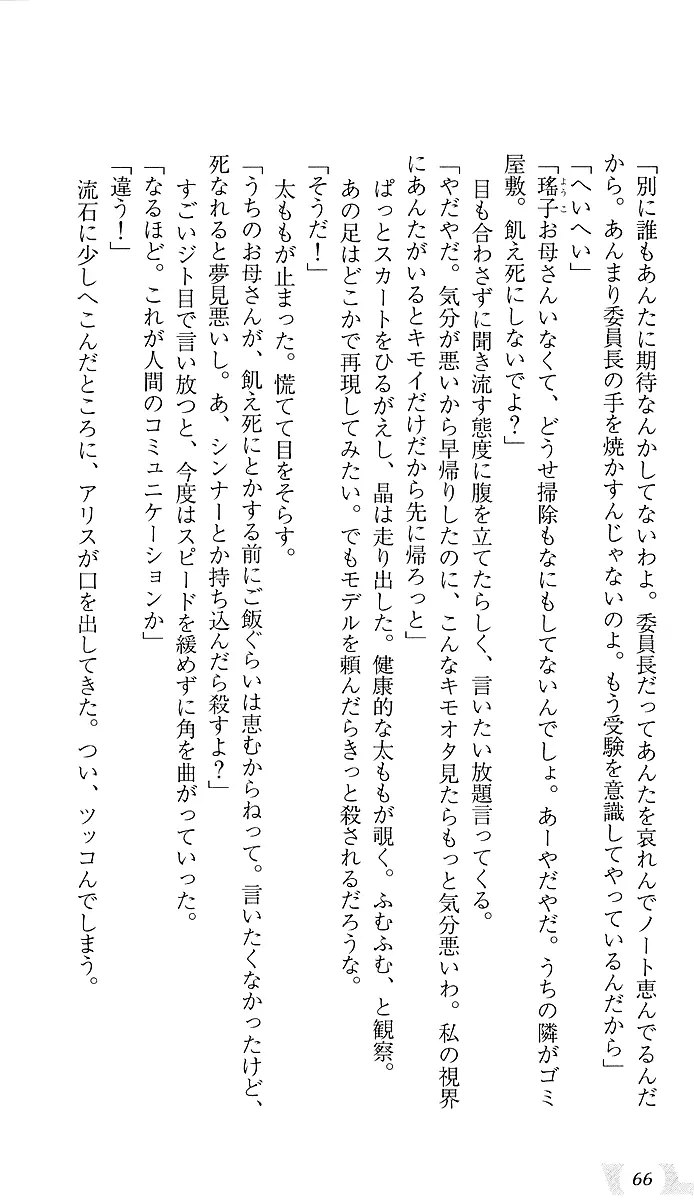 「別に誰もあんたに期待なんかしてないわよ。委員長だってあんたを哀れんでノート恵んでるんだ
から。あんまり委員長の手を焼かすんじゃないのよ。もう受験を意識してやっているんだから」
「へいへい」
「瑤子お母さんいなくて、どうせ掃除もなにもしてないんでしょ。あーやだやだ。うちの隣がゴミ
ようこ
屋敷。飢え死にしないでよ？」
　目も合わさずに聞き流す態度に腹を立てたらしく、言いたい放題言ってくる。
「やだやだ。気分が悪いから早帰りしたのに、こんなキモオタ見たらもっと気分悪いわ。私の視界
にあんたがいるとキモイだけだから先に帰ろっと」
　ぱっとスカートをひるがえし、晶は走り出した。健康的な太ももが覗く。ふむふむ、と観察。
　あの足はどこかで再現してみたい。でもモデルを頼んだらきっと殺されるだろうな。
「そうだ！」
　太ももが止まった。慌てて目をそらす。
「うちのお母さんが、飢え死にとかする前にご飯ぐらいは恵むからねって。言いたくなかったけど、
死なれると夢見悪いし。あ、シンナーとか持ち込んだら殺すよ？」
　すごいジト目で言い放つと、今度はスピードを緩めずに角を曲がっていった。
「なるほど。これが人間のコミュニケーションか」
「違う！」
　流石に少しへこんだところに、アリスが口を出してきた。つい、ツッコんでしまう。
66